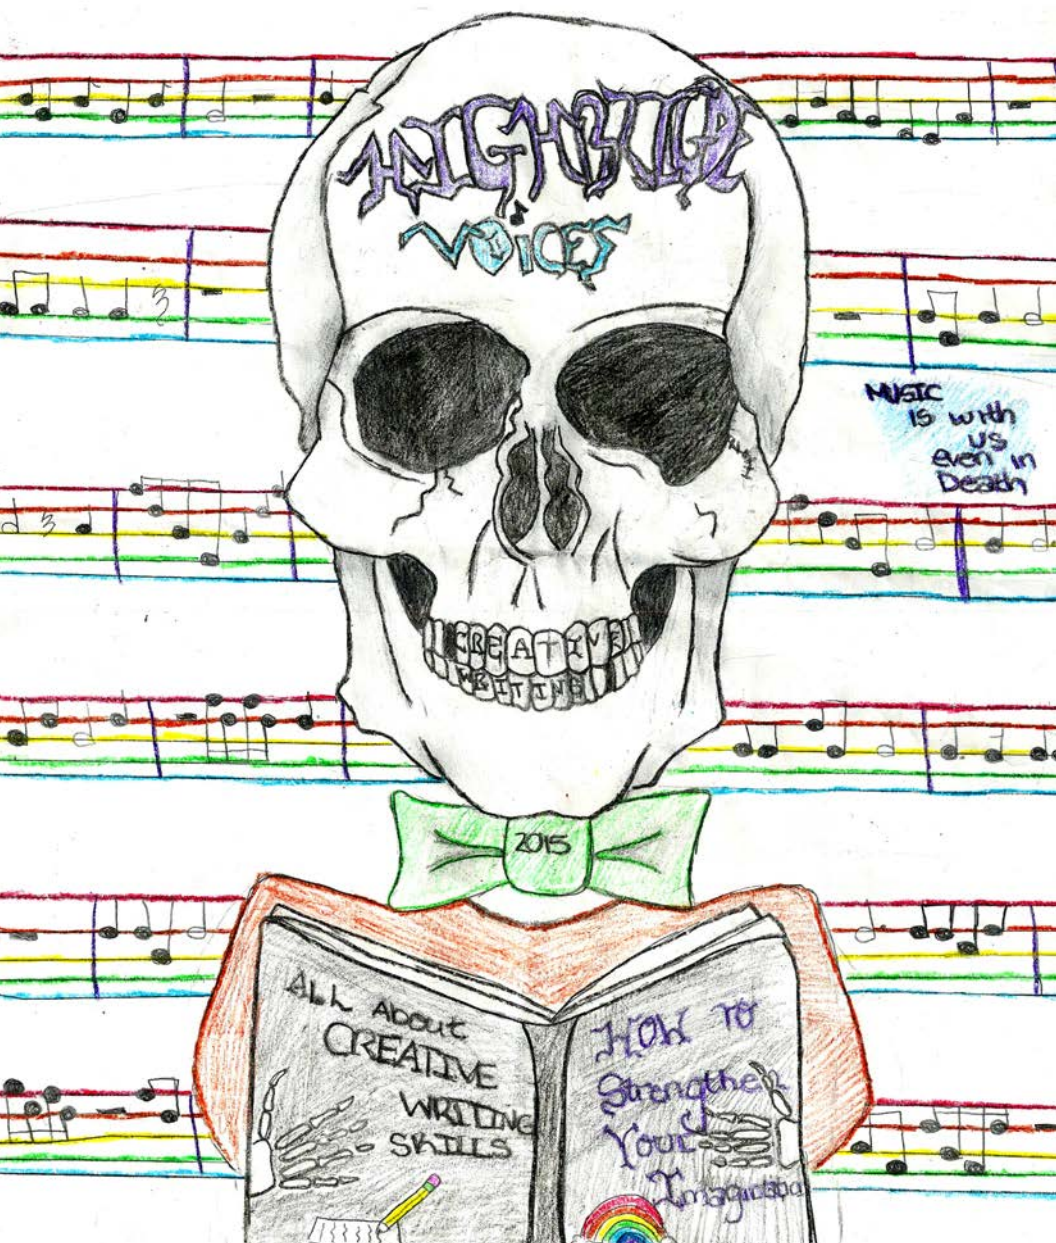 HIGHBRIDGE
VOiCES
MUSIC
is with
us
even in
Death
CREATIVE
WRITING
2015
ALL About
CREATIVE
WRITING
SKILLS
HOW TO
Strengthen
Your
Imagination